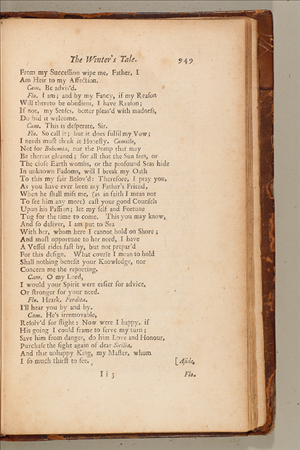 The Winter's Tale. 949
From my Succession wipe me, Father, I
Am Heir to my Affection.
Cam. Be advis'd.
Flo. I am; and by my Fancy, if my Reason
Will thereto be obedient, I have Reason;
If not, my Senses, better pleas'd with madness,
Do bid it welcome.
Cam. This is desperate, Sir.
Flo. So call it; but it does fulfil my Vow;
I needs must think it Honesty. Camillo,
Not for Bohemia, nor the Pomp that may
Be thereat gleaned; for all that the Sun sees, or
The close Earth wombs, or the profound Seas hide
In unknown Fadoms, will I break my Oath
To this my fair Belov'd: Therefore, I pray you,
As you have ever been my Father's Friend,
When he shall miss me, (as in faith I mean not
To see him any more) cast your good Counsels
Upon his Passion; let my self and Fortune
Tug for the time to come. This you may know,
And so deliver, I am put to Sea
With her, whom here I cannot hold on Shore;
And most opportune to her need, I have
A Vessel rides fast by, but not prepar'd
For this design. What course I mean to hold
Shall nothing benefit your Knowledge, nor
Concern me the reporting.
Cam. O my Lord,
I would your Spirit were easier for advice,
Or stronger for your need.
Flo. Heark, Perdita.
I'll hear you by and by.
Cam. He's irremovable,
Resolv'd for flight: Now were I happy, if
His going I could frame to serve my turn;
Save him from danger, do him Love and Honour,
Purchase the sight again of dear Sicilia,
And that unhappy King, my Master, whom
I so much thirst to see. [Aside.
I i 3 Flo.